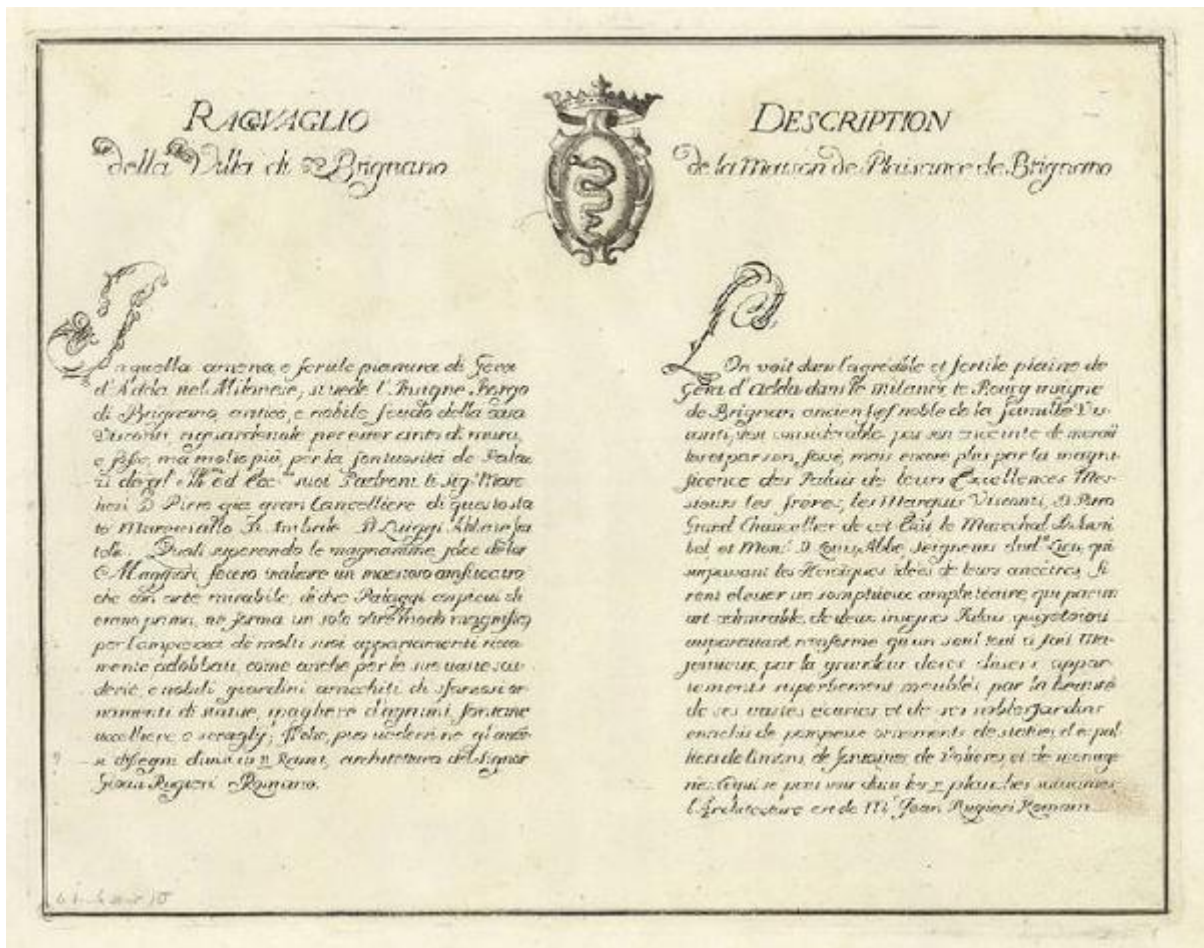 RAGVAGLIO
della Villa di Brignano
In quella amena, e fertile pianura di Gera
d'Adda nel Milanese, si vede l'Insigne Borgo
di Brignano, antico, e nobile feudo della casa
Visconti, riguardevole per esser cinto di mura,
e fosse, ma molto più per la sontuosità de Palaz
zi degl' Ill.mi ed Ecc.mi suoi Padroni le sig.i Mar=
chesi D. Pirro gia gran Cancelliere di questo sta
to Maresciallo D. Anibale D. Luiggi Abbate fra
telli. Quali superando le magnanime idee de lor
Maggiori, fecero inalzare un maestoso anfiteatro
che con arte mirabile, di due Palaggi cospicui ch
erano prima, ne forma un solo oltre modo magnifico,
per l'ampiezza de molti suoi appartamenti ricca
mente addobbati, come anche per le sue vaste scu
derie, e nobili giardini arrichiti di sfarzosi or
namenti di statue, spagliere d'agrumi, fontane
uccelliere e seragly;
disegni architettura del signor
Gioan Rugieri Romano.
DESCRIPTION
de la Maison de Plaisance de Brignano
L'On voit dans l'agréable et fertile plaine de
Gera d'adda dans le milanès le Bourg insigne
de Brignan ancien fief noble de la famille Vis
conti, son considerable par son enceinte de murail
les et par son fossé, mais encore plus par la magni=
ficence des Palais de leurs Excellences Mes=
sieurs les freres, les Marquis Visconti, D. Pirro
Grand Chancellier de cet Etat le Marechal D. Hani
bal et Mons.r D. Louis Abbé, seigneurs dud.t Lieu, qui
surpassant les Heroiques idées de leurs ancêtres, fi
rent elever un somptueux amphiteatre, qui par un
art admirable, de deux insignes Palais qui etoient
auparavant n'enferme qu'un seul tout a fait Ma=
jestueux, par la grandeur de ses divers appar=
tements superbement meublés par la beauté
de ses vastes ecuries et de ses nobles Jardins
enrichis de pompeux ornements de statües d'espal
liers de limons de fontaines de Volieres, et de menage
ries. Ce qui se peut voir dans les planches suivantes
l'Architecture est de M.r Jean Rugieri Romain